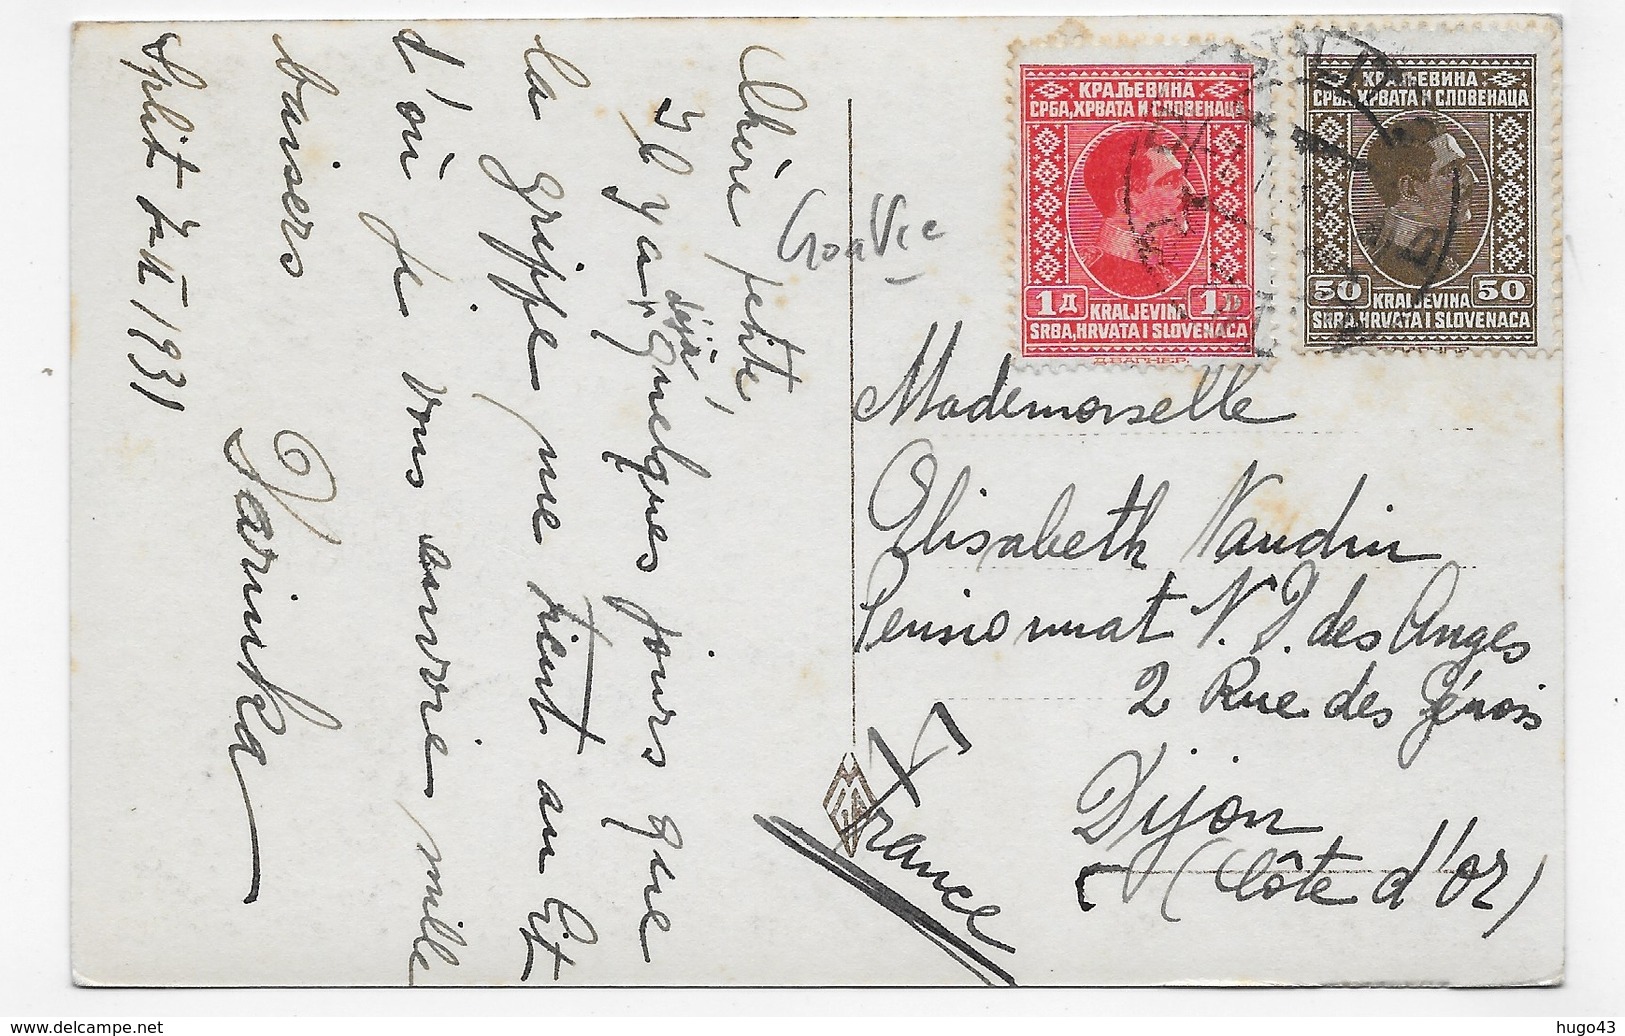 Chère petite,
Il y a déjà quelques jours que
la grippe me tient au lit
d'où je vous envoie mille
baisers
Darinka
Split 1931
Croatie
КРАЉЕВИНА
СРБА, ХРВАТА И СЛОВЕНАЦА
1Д 1Д
KRALJEVINA
SRBA, HRVATA I SLOVENACA
Д.ВАГНЕР.
КРАЉЕВИНА
СРБА, ХРВАТА И СЛОВЕНАЦА
50 KRALJEVINA 50
SRBA, HRVATA I SLOVENACA
Mademoiselle
Elisabeth Naudin
Pensionnat N. D. des Anges
2 Rue des Génois
Dijon
(Côte d'Or)
France
delcampe.net
hugo43